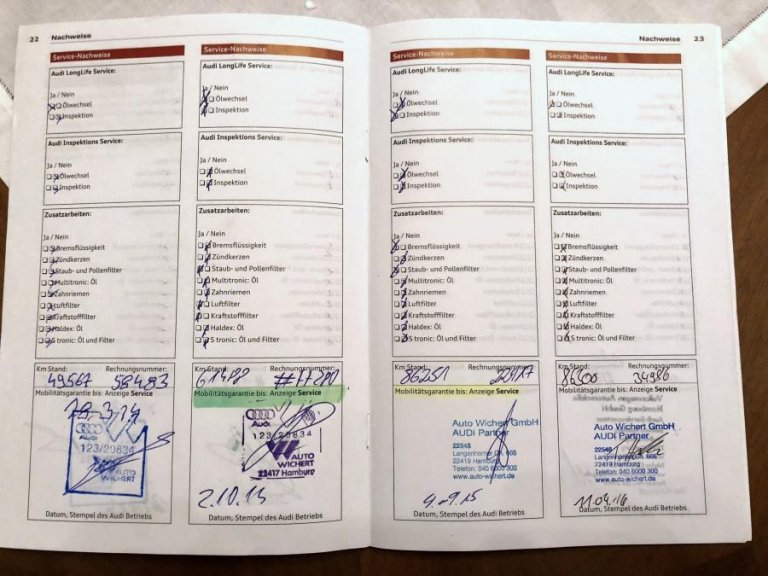 22 Nachweise
Service-Nachweise
Audi LongLife Service:
Ja / Nein
Ölwechsel
Inspektion
Audi Inspektions Service:
Ja / Nein
Ölwechsel
Inspektion
Zusatzarbeiten:
Ja / Nein
Bremsflüssigkeit
Zündkerzen
Staub- und Pollenfilter
Multitronic: Öl
Zahnriemen
Luftfilter
Kraftstofffilter
Haldex: Öl
S tronic: Öl und Filter
Km Stand: Rechnungsnummer:
49567 58483
Mobilitätsgarantie bis: Anzeige Service
Audi
123/20834
AUTO
WICHERT
Datum, Stempel des Audi Betriebs
Service-Nachweise
Audi LongLife Service:
Ja / Nein
Ölwechsel
Inspektion
Audi Inspektions Service:
Ja / Nein
Ölwechsel
Inspektion
Zusatzarbeiten:
Ja / Nein
Bremsflüssigkeit
Zündkerzen
Staub- und Pollenfilter
Multitronic: Öl
Zahnriemen
Luftfilter
Kraftstofffilter
Haldex: Öl
S tronic: Öl und Filter
Km Stand: Rechnungsnummer:
Mobilitätsgarantie bis: Anzeige Service
Audi
123/20834
AUTO
WICHERT
22417 Hamburg
Datum, Stempel des Audi Betriebs
Nachweise 23
Service-Nachweise
Audi LongLife Service:
Ja / Nein
Ölwechsel
Inspektion
Audi Inspektions Service:
Ja / Nein
Ölwechsel
Inspektion
Zusatzarbeiten:
Ja / Nein
Bremsflüssigkeit
Zündkerzen
Staub- und Pollenfilter
Multitronic: Öl
Zahnriemen
Luftfilter
Kraftstofffilter
Haldex: Öl
S tronic: Öl und Filter
Km Stand: Rechnungsnummer:
86251
Mobilitätsgarantie bis: Anzeige Service
Auto Wichert GmbH
AUDI Partner
22548
Langenhorner Ch. 666
22419 Hamburg
Telefon: 040 6008 300
www.auto-wichert.de
Datum, Stempel des Audi Betriebs
Service-Nachweise
Audi LongLife Service:
Ja / Nein
Ölwechsel
Inspektion
Audi Inspektions Service:
Ja / Nein
Ölwechsel
Inspektion
Zusatzarbeiten:
Ja / Nein
Bremsflüssigkeit
Zündkerzen
Staub- und Pollenfilter
Multitronic: Öl
Zahnriemen
Luftfilter
Kraftstofffilter
Haldex: Öl
S tronic: Öl und Filter
Km Stand: Rechnungsnummer:
86500 34986
Mobilitätsgarantie bis: Anzeige Service
Auto Wichert GmbH
AUDI Partner
22548
Langenhorner Ch. 666
22419 Hamburg
Telefon: 040 6008 300
www.auto-wichert.de
11.04.16
Datum, Stempel des Audi Betriebs